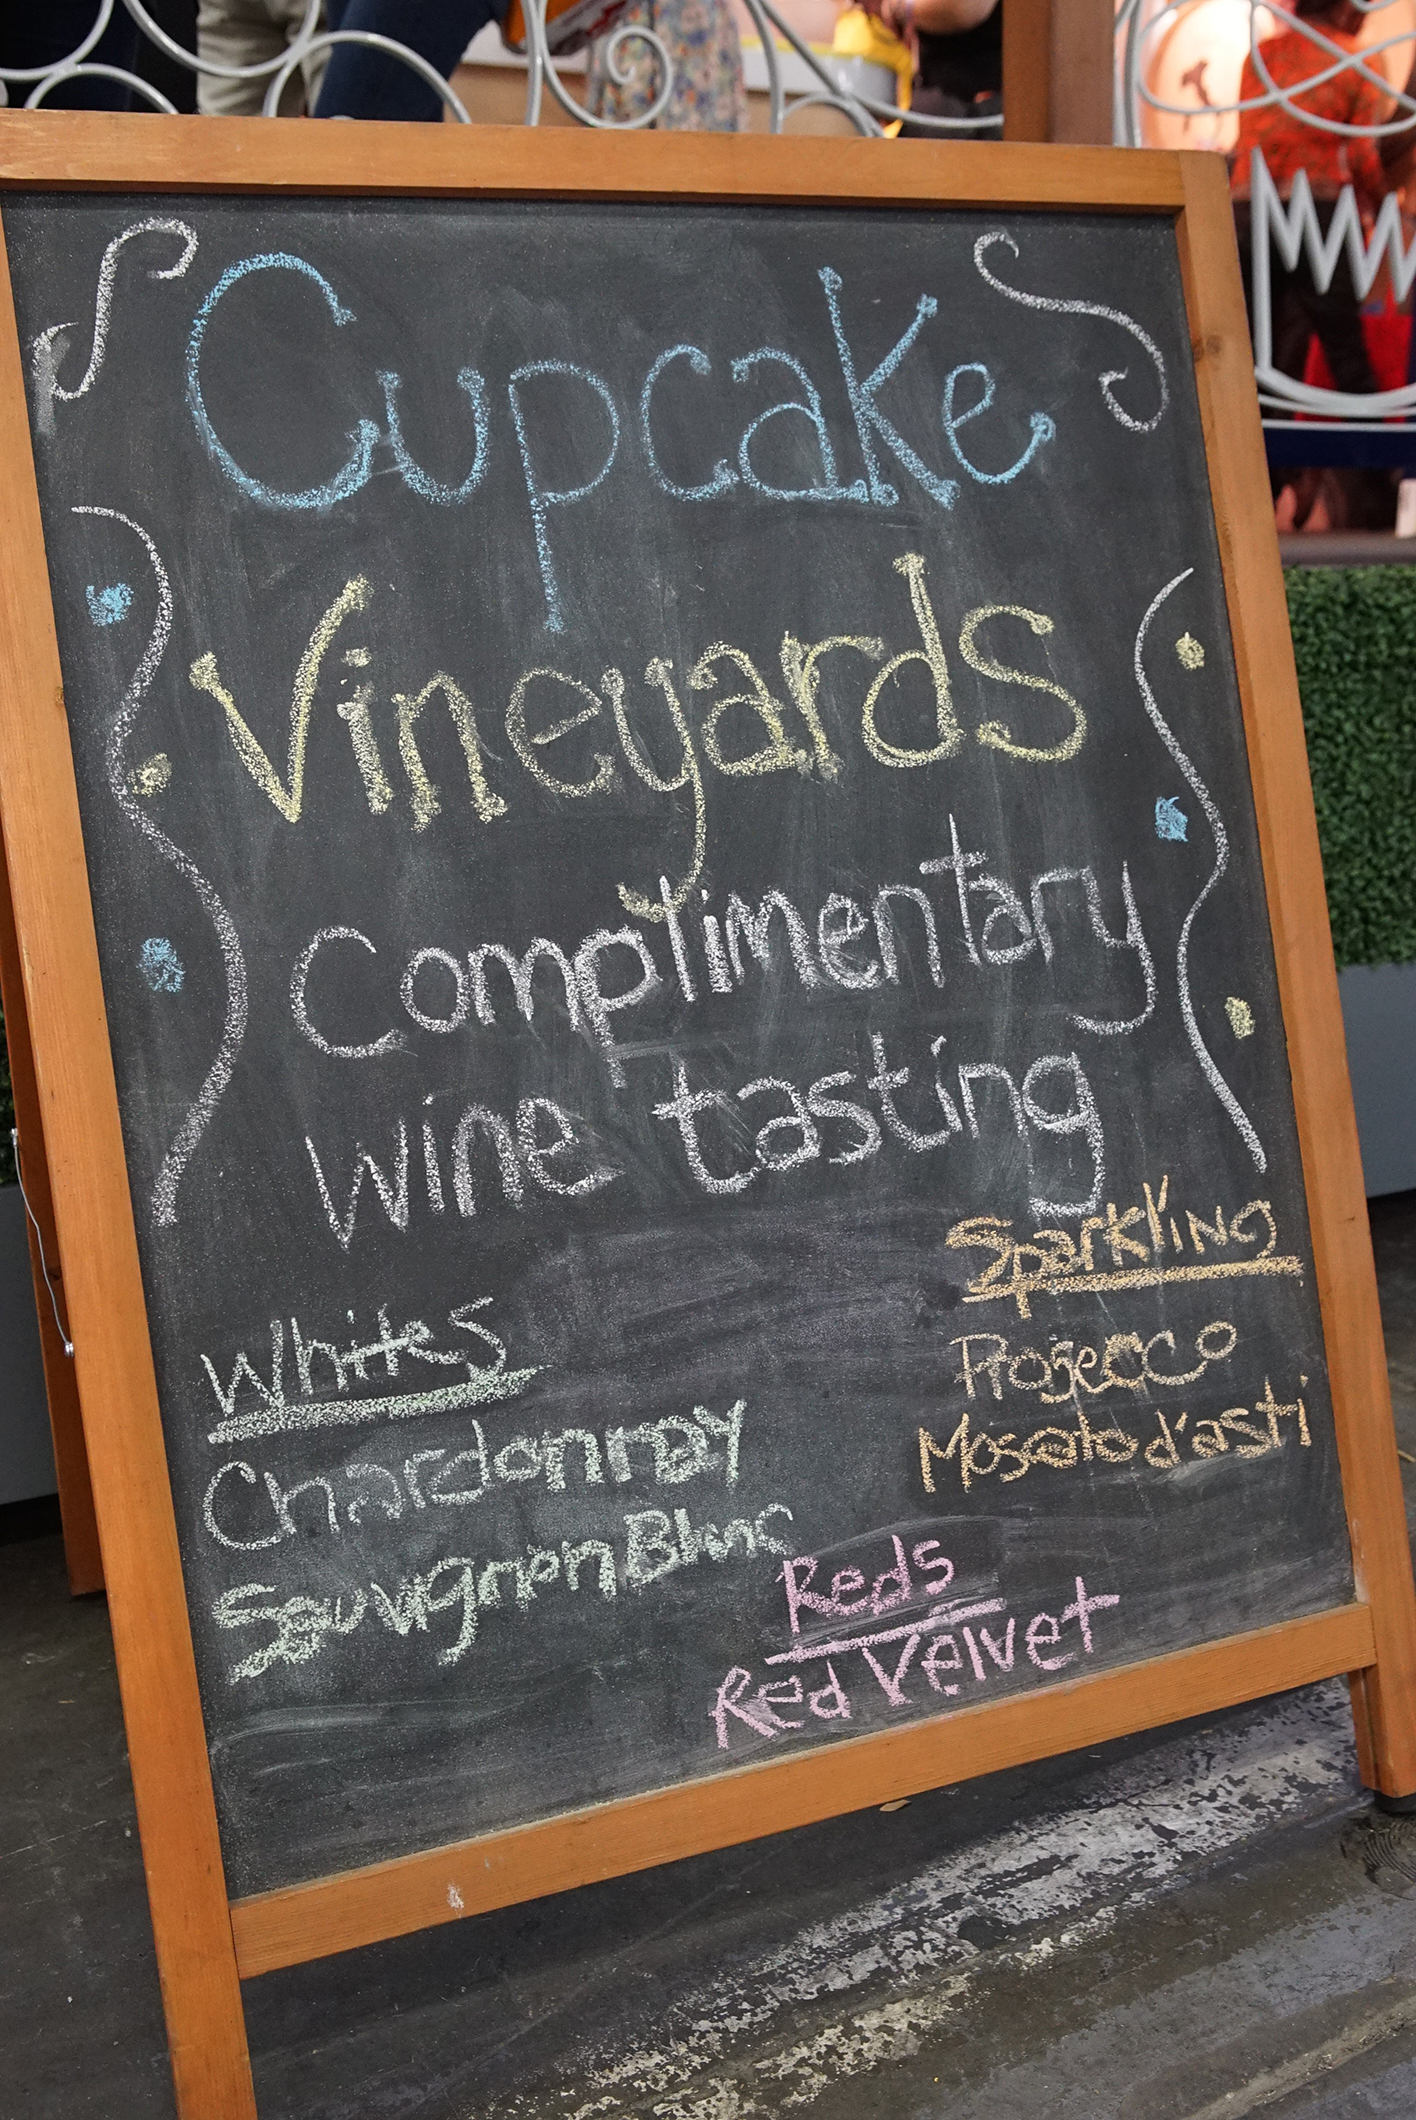 Cupcake
Vineyards
Complimentary
wine tasting
Whites
Chardonnay
Sauvignon Blanc
Sparkling
Prosecco
Moscato d'asti
Reds
Red Velvet